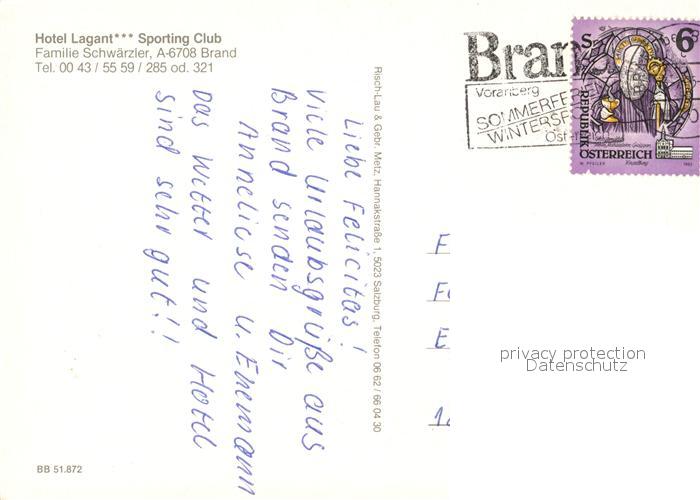 Hotel Lagant*** Sporting Club
Familie Schwärzler, A-6708 Brand
Tel. 00 43 / 55 59 / 285 od. 321
Liebe Felicitas!
Viele Urlaubsgrüße aus
Brand senden Dir
Anneliese u. Ehemann
Das Wetter und Hotel
sind sehr gut!!
Risch-Lau & Gebr. Metz, Hannakstraße 1, 5023 Salzburg, Telefon 06 62 / 66 04 30
BB 51.872
Bran
Vorarlberg
SOMMERFE
WINTERSP
Öst
S 6
REPUBLIK
ÖSTERREICH
F
E
privacy protection
Datenschutz